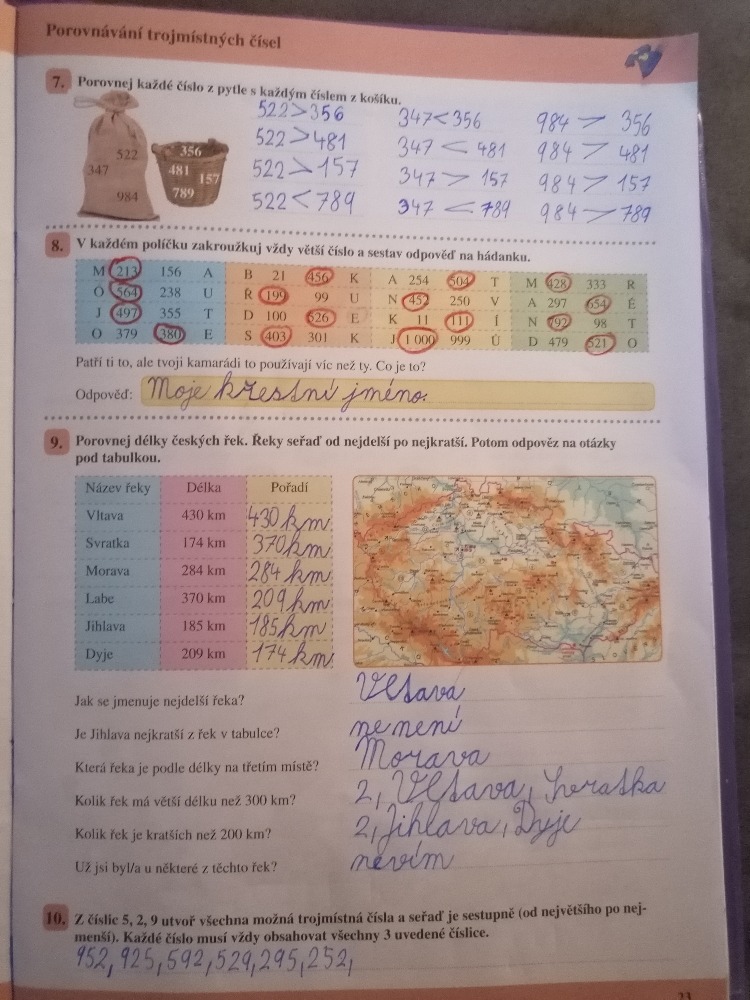 Porovnávání trojmístných čísel
7. Porovnej každé číslo z pytle s každým číslem z košíku.
522 347 984
356 481 157 789
522 > 356 347 < 356 984 > 356
522 > 481 347 < 481 984 > 481
522 > 157 347 > 157 984 > 157
522 < 789 347 < 789 984 > 789
8. V každém políčku zakroužkuj vždy větší číslo a sestav odpověď na hádanku.
M 213 156 A B 21 456 K A 254 504 T M 428 333 R
O 564 238 U Ř 199 99 U N 452 250 V A 297 654 É
J 497 355 T D 100 626 E K 11 111 Í N 792 98 T
O 379 380 E S 403 301 K J 1 000 999 Ú D 479 521 O
Patří ti to, ale tvoji kamarádi to používají víc než ty. Co je to?
Odpověď: Moje křestní jméno.
9. Porovnej délky českých řek. Řeky seřaď od nejdelší po nejkratší. Potom odpověz na otázky
pod tabulkou.
Název řeky Délka Pořadí
Vltava 430 km 430 km
Svratka 174 km 370 km
Morava 284 km 284 km
Labe 370 km 209 km
Jihlava 185 km 185 km
Dyje 209 km 174 km
Jak se jmenuje nejdelší řeka? Vltava
Je Jihlava nejkratší z řek v tabulce? ne není
Která řeka je podle délky na třetím místě? Morava
Kolik řek má větší délku než 300 km? 2, Vltava,
Kolik řek je kratších než 200 km? 2, Jihlava, Dyje
Už jsi byl/a u některé z těchto řek? nevím
10. Z číslic 5, 2, 9 utvoř všechna možná trojmístná čísla a seřaď je sestupně (od největšího po nej-
menší). Každé číslo musí vždy obsahovat všechny 3 uvedené číslice.
952, 925, 592, 529, 295, 252,
23